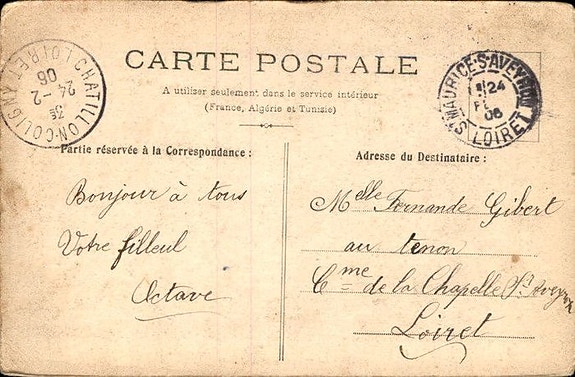 CARTE POSTALE
A utiliser seulement dans le service intérieur
(France, Algérie et Tunisie)
CHATILLON-COLIGNY
LOIRET
24 -2
06
ST MAURICE-S-AVEYRON
24
06
LOIRET
Partie réservée à la Correspondance :
Bonjour à tous
Votre filleul
Octave
Adresse du Destinataire :
Melle Fernande Gibert
au tenon
Cme de la Chapelle St Aveyron
Loiret